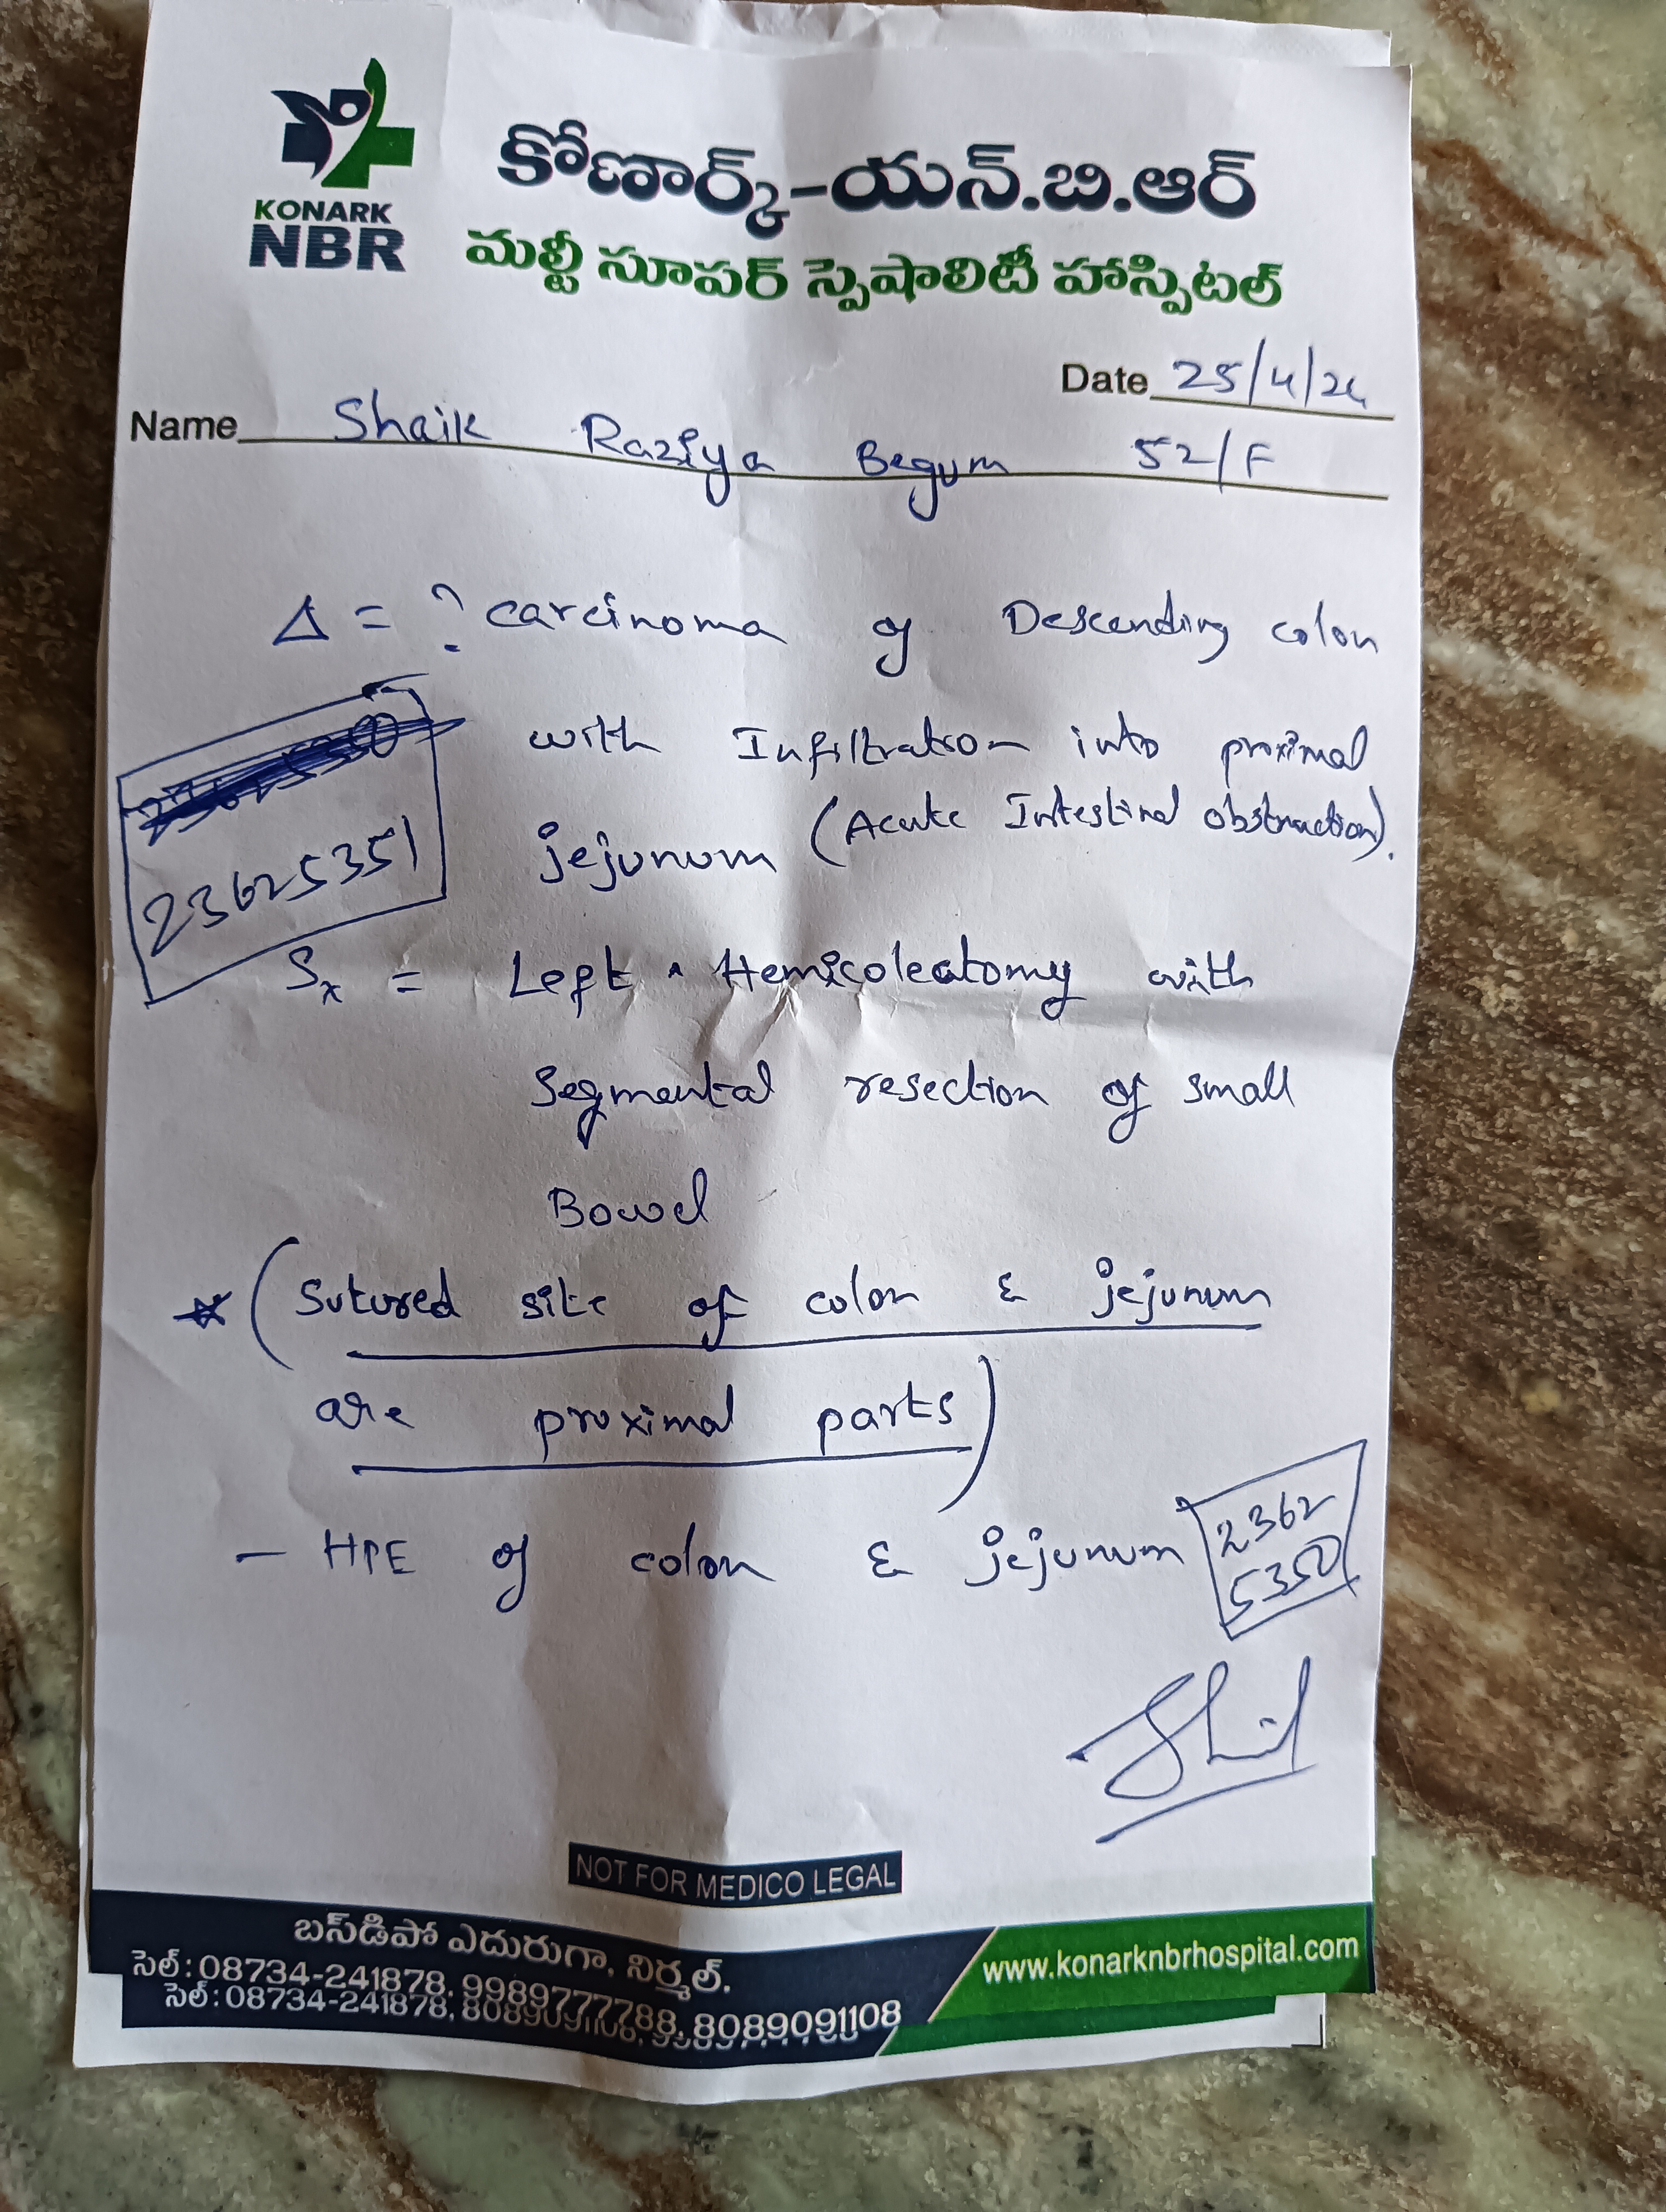 కోణార్క్-యన్.బి.ఆర్
KONARK
NBR
మల్టీ సూపర్ స్పెషాలిటీ హాస్పిటల్
Date 25/4/24
Name Shaik Raziya Begum 52/F
Δ = ? carcinoma of Descending colon
with Infiltration into proximal
jejunum (Acute Intestinal obstruction).
23625351
Sx = Left Hemicolectomy with
Segmental resection of small
Bowel
* (Sutured site of colon & jejunum
are proximal parts)
- HPE of colon & jejunum
2362
5350
NOT FOR MEDICO LEGAL
బస్‌డిపో ఎదురుగా, నిర్మల్.
సెల్: 08734-241878, 9989777788, 8089091108
సెల్: 08734-241878,
www.konarknbrhospital.com